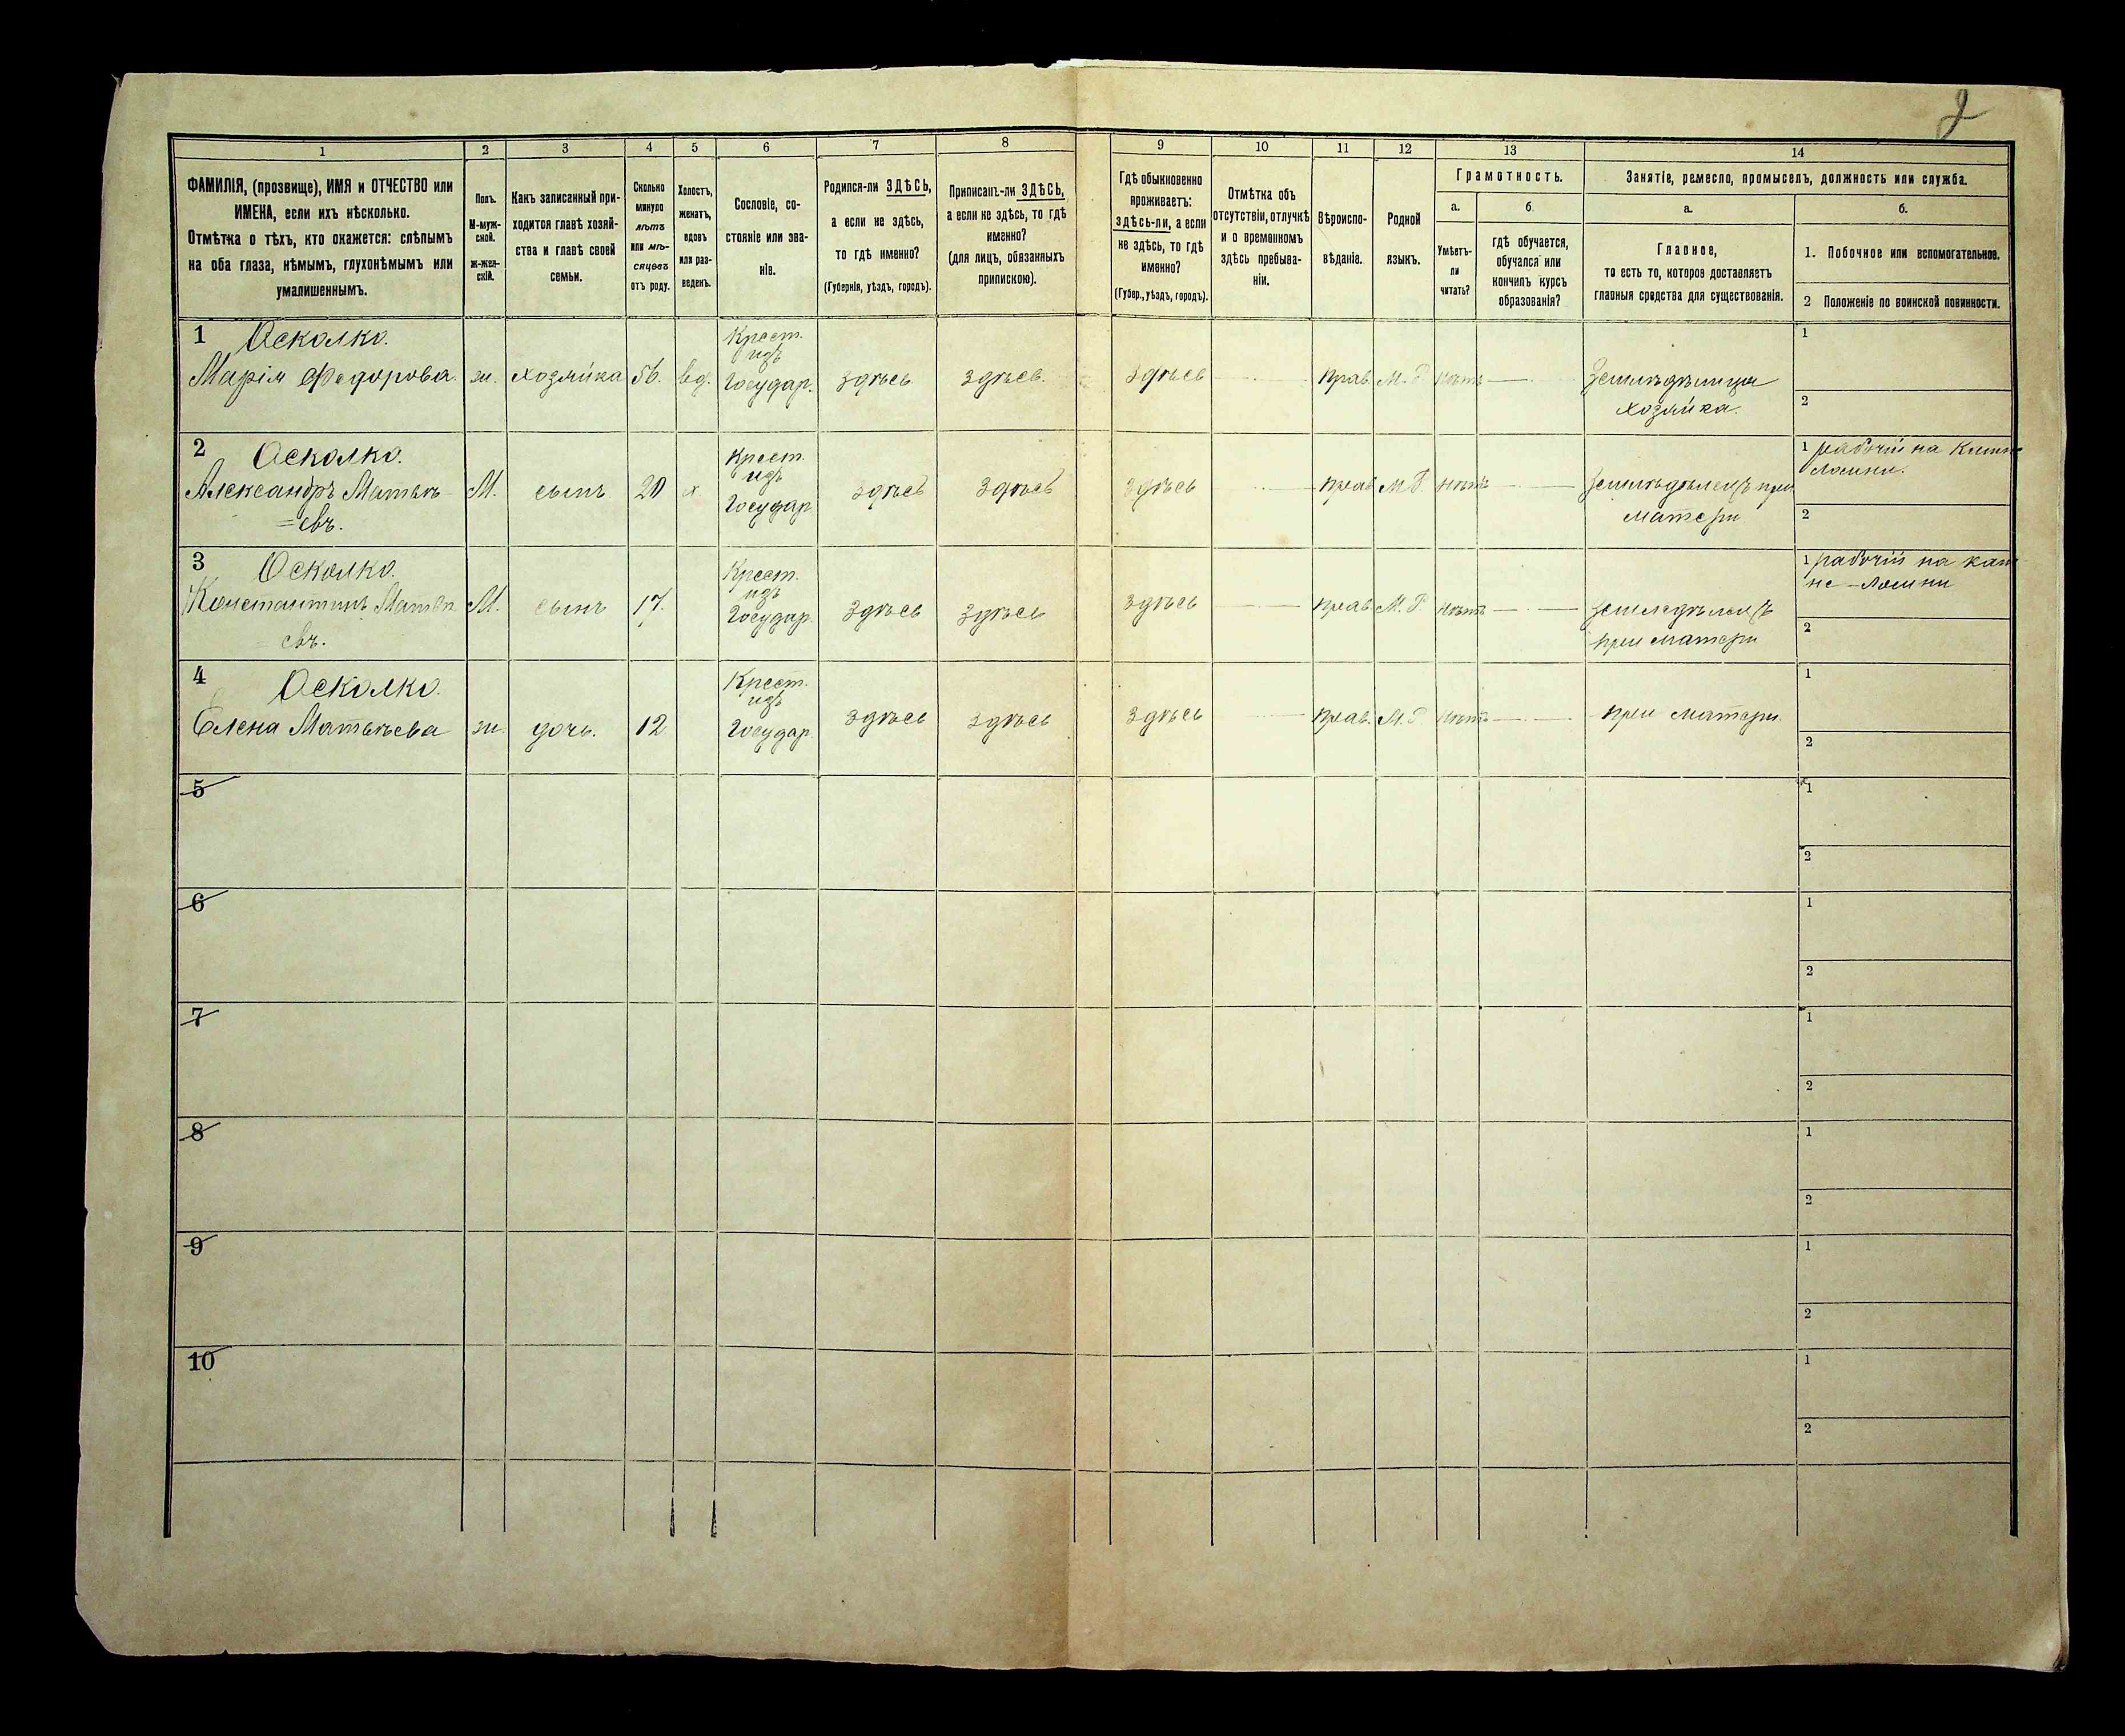 2
1 2 3 4 5 6 7 8 9 10 11 12 13 14
ФАМИЛІЯ, (прозвище), ИМЯ и ОТЧЕСТВО или
ИМЕНА, если ихъ нѣсколько.
Отмѣтка о тѣхъ, кто окажется: слѣпымъ
на оба глаза, нѣмымъ, глухонѣмымъ или
умалишеннымъ.
Полъ.
М-муж-
ской.
Ж-жен-
скій.
Какъ записанный при-
ходится главѣ хозяй-
ства и главѣ своей
семьи.
Сколько
минуло
лѣтъ
или мѣ-
сяцевъ
отъ роду.
Холостъ,
женатъ,
вдовъ
или раз-
веденъ.
Сословіе, со-
стояніе или зва-
ніе.
Родился-ли ЗДѢСЬ,
а если не здѣсь,
то гдѣ именно?
(Губернія, уѣздъ, городъ).
Приписанъ-ли ЗДѢСЬ,
а если не здѣсь, то гдѣ
именно?
(для лицъ, обязанныхъ
припискою).
Гдѣ обыкновенно
проживаетъ:
здѣсь-ли, а если
не здѣсь, то гдѣ
именно?
(Губер., уѣздъ, городъ).
Отмѣтка объ
отсутствіи, отлучкѣ
и о временномъ
здѣсь пребыва-
ніи.
Вѣроиспо-
вѣданіе.
Родной
языкъ.
Грамотность.
а.
Умѣетъ-
ли
читать?
б.
гдѣ обучается,
обучался или
кончилъ курсъ
образованія?
Занятіе, ремесло, промыселъ, должность или служба.
а.
Главное,
то есть то, которое доставляетъ
главныя средства для существованія.
б.
1. Побочное или вспомогательное.
2 Положеніе по воинской повинности.
1 Осколко. Крест. 1
изъ
Марія Федорова ж. хозяйка 56. вд. Государ. здѣсь здѣсь. здѣсь прав. М. Р. нѣтъ Земледѣлица
хозяйка. 2
2 Осколко. Крест. 1 рабочій на Камне
изъ ломни.
Александръ Матвѣ- М. сынъ 20 х. Государ здѣсь здѣсь здѣсь прав М. Р. нѣтъ земледѣлецъ при
=евъ. матери 2
3 Осколко. Крест. 1 рабочій на кам
изъ не-ломни
Константинъ Матвѣ М. сынъ 17. Государ здѣсь здѣсь здѣсь прав М. Р. нѣтъ земледѣлецъ
= евъ. при матери 2
4 Осколко. Крест. 1
изъ
Елена Матвѣева ж. дочь. 12 Государ здѣсь здѣсь здѣсь прав. М. Р. нѣтъ при матери.
2
5 1
2
6 1
2
7 1
2
8 1
2
9 1
2
10 1
2